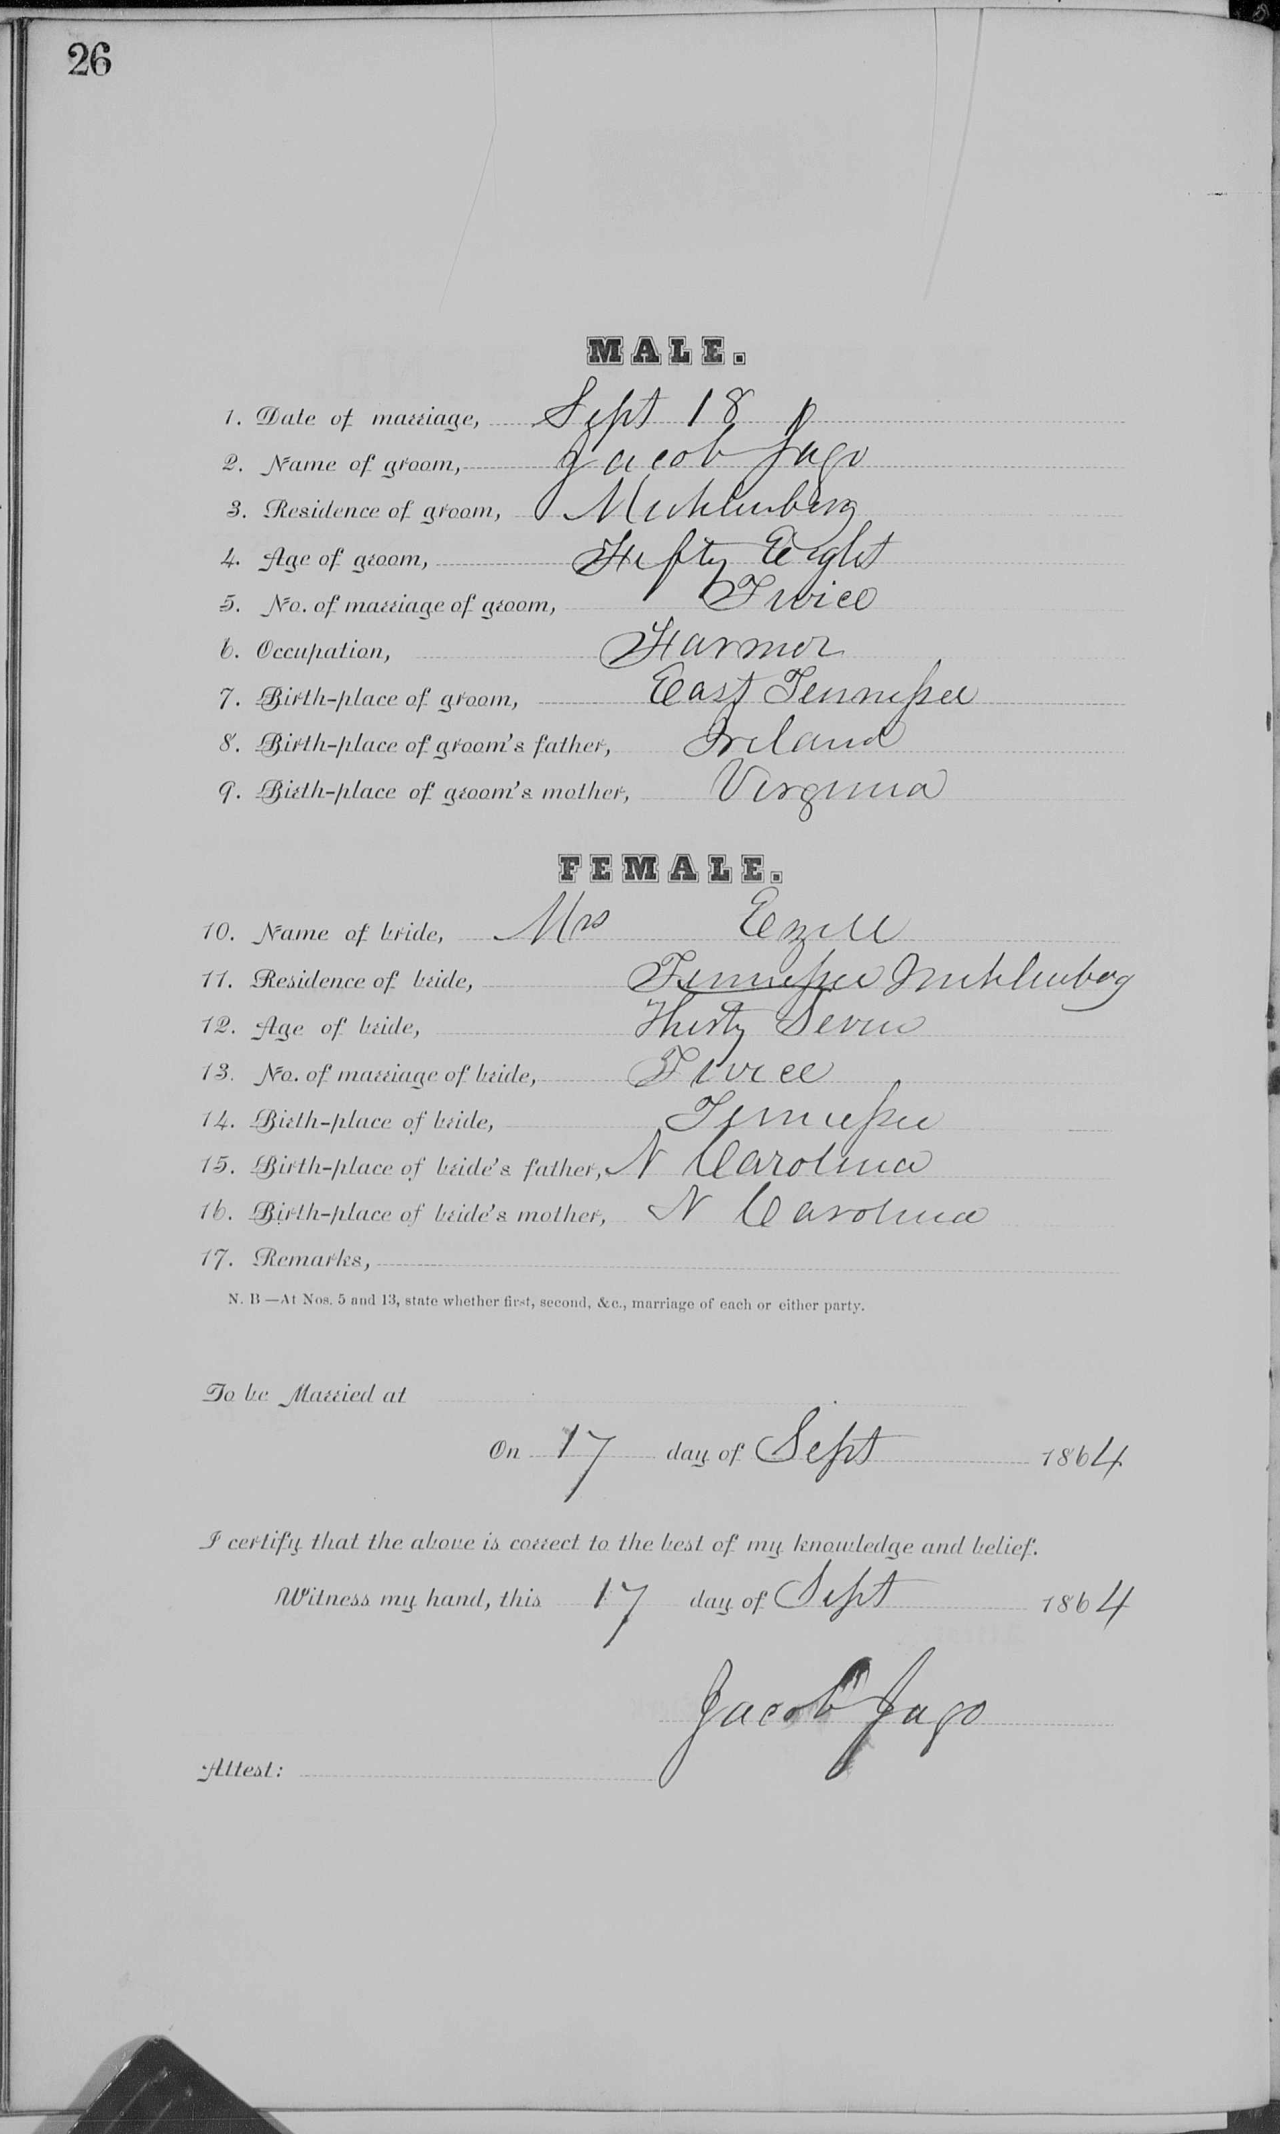 26
MALE.
1. Date of marriage, Sept 18
2. Name of groom, Jacob Jago
3. Residence of groom, Muhlenberg
4. Age of groom, Fifty Eight
5. No. of marriage of groom, Twice
6. Occupation, Farmer
7. Birth-place of groom, East Tennessee
8. Birth-place of groom's father, Ireland
9. Birth-place of groom's mother, Virginia
FEMALE.
10. Name of bride, Mrs Ezell
11. Residence of bride, Tennessee Muhlenberg
12. Age of bride, Thirty Seven
13. No. of marriage of bride, Twice
14. Birth-place of bride, Tennessee
15. Birth-place of bride's father, N Carolina
16. Birth-place of bride's mother, N Carolina
17. Remarks,
N. B—At Nos. 5 and 13, state whether first, second, &c., marriage of each or either party.
To be Married at
On 17 day of Sept 1864
I certify that the above is correct to the best of my knowledge and belief.
Witness my hand, this 17 day of Sept 1864
Jacob Jago
Attest: